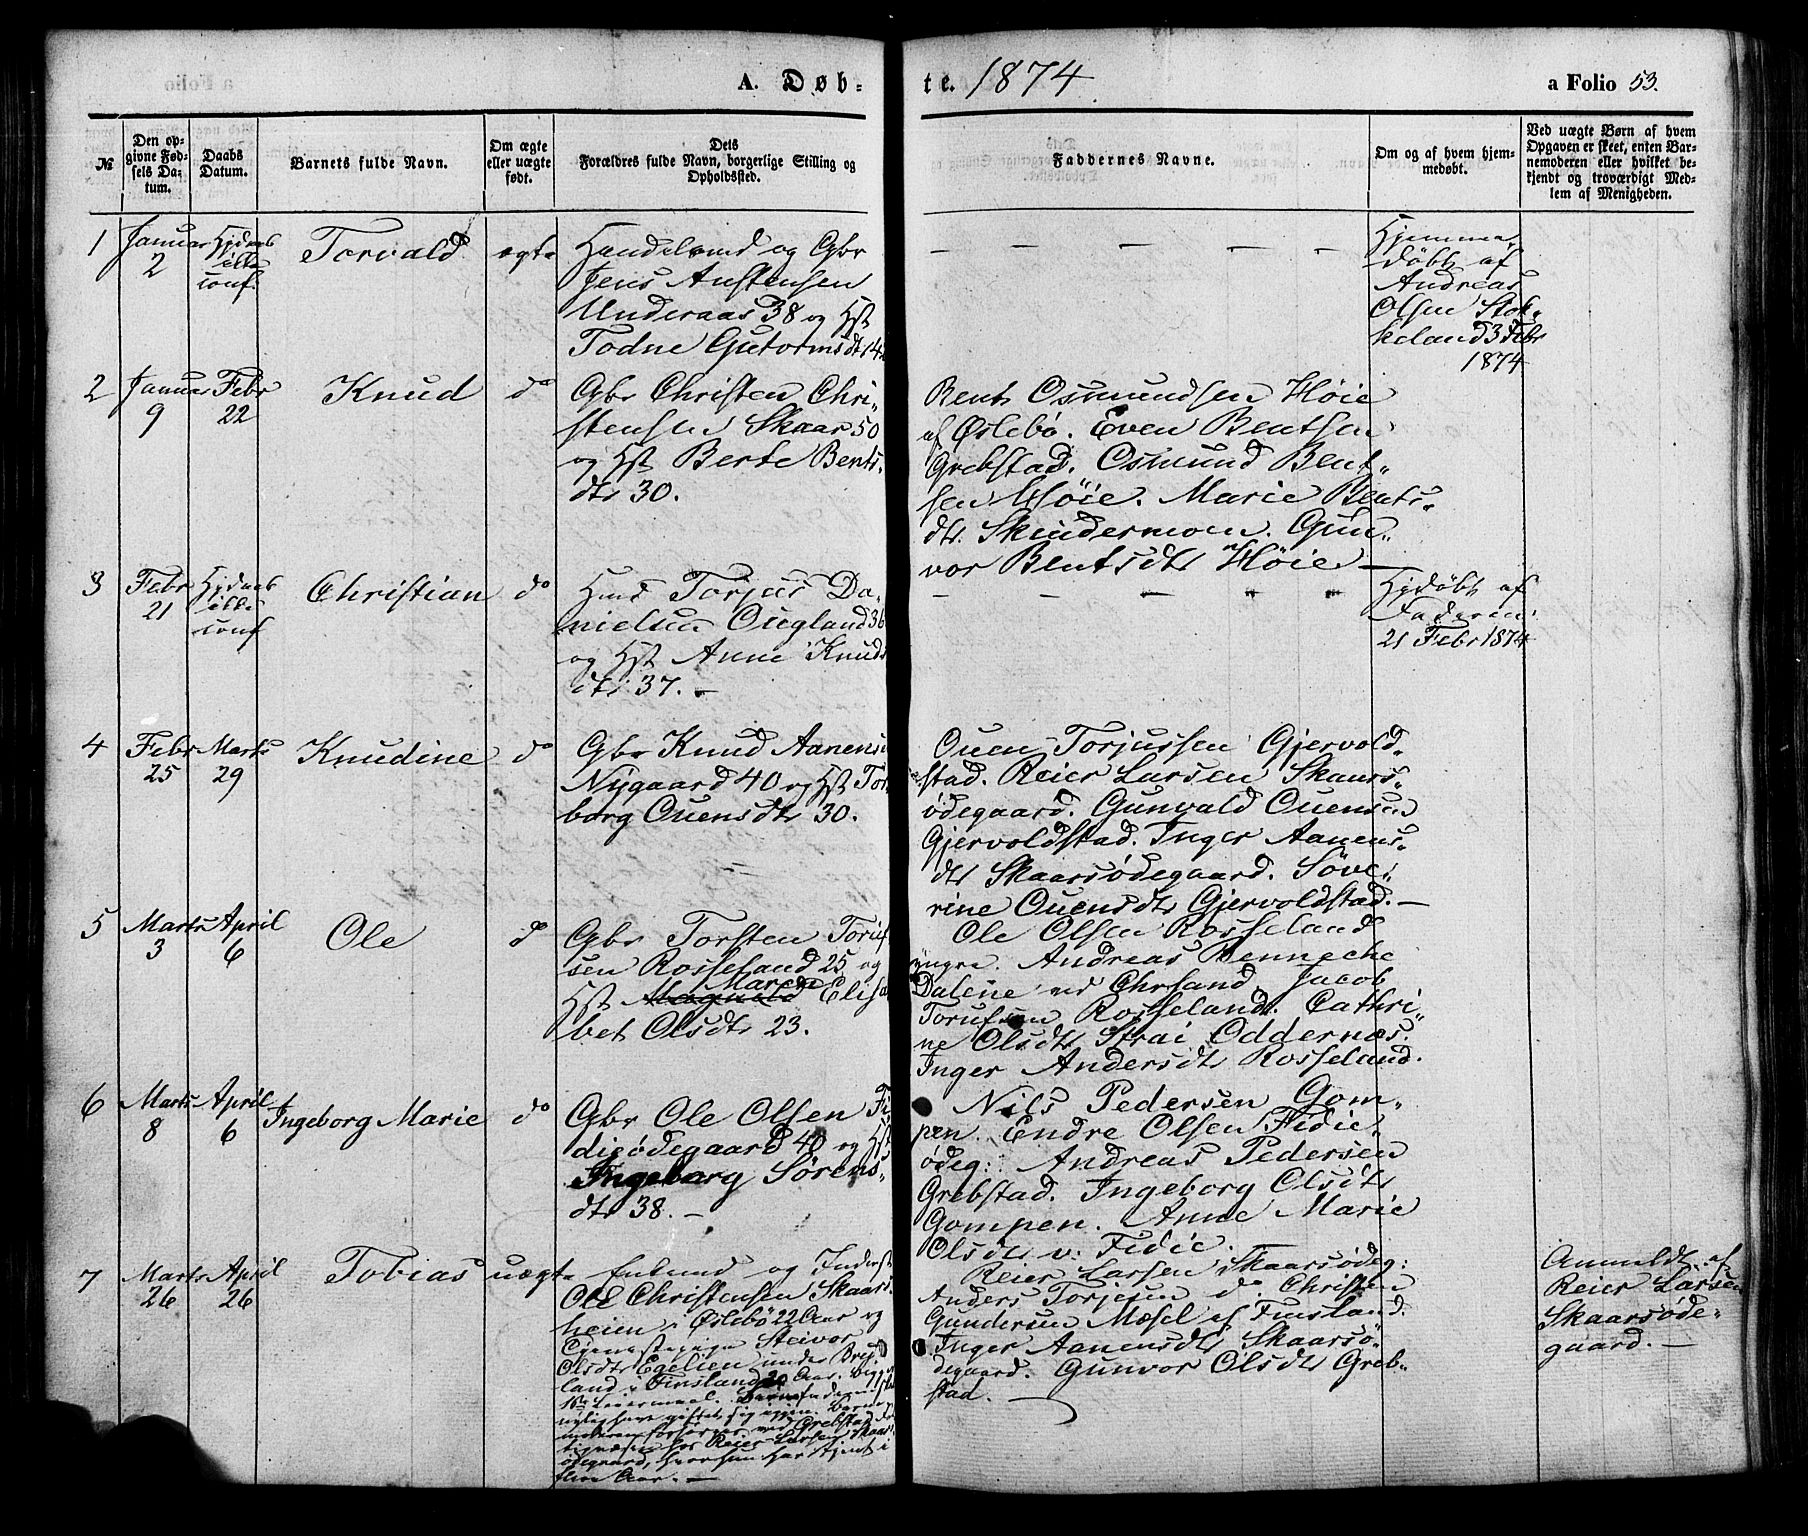 A. Døb-
te. 1874
a Folio 53.
№
Den op-
givne Fød-
sels Da-
tum.
Daabs
Datum.
Barnets fulde Navn.
Om ægte
eller uægte
født.
Dets
Forældres fulde Navn, borgerlige Stilling og
Opholdssted.
Faddernes Navne.
Om og af hvem hjem-
medøbt.
Ved uægte Børn af hvem
Opgaven er skeet, enten Bar-
nemoderen eller hvilket be-
kjendt og troværdigt Med-
lem af Menigheden.
1
Januar
2
Hjdaab
ikke
conf.
Torvald
ægte
Handelsmd og Gbr
Jens Anstensen
Underaas 38 og Hst
Todne Gutormsdt 14
Hjemme
døbt af
Andreas
Olsen Stok-
keland 3 Febr
1874
2
Januar
9
Febr
22
Knud
do
Gbr Christen Chri-
stensen Skaar 50
og Hst Berte Bents-
dtr 30.
Bent Osmundsen Høie
af Øslebø. Even Bentsen
Grebstad. Osmund Bent-
sen Høie. Marie Bents-
dt. Skindermoen. Gun-
vor Bentsdt Høie –
3
Febr
21
Hjdaab
ikke
conf
Christian
do
Hmd Torjus Da-
nielsen Ougland 36
og Hst Anne Knuds
dtr 37. –
Hjdøbt af
Faderen
21 Febr 1874
4
Febr
25
Marts
29
Knudine
do
Gbr Knud Aanens
Nygaard 40 og Hst Tor
borg Ouensdtr 30.
Ouen Torjussen Gjervold-
stad. Reier Larsen Skaars-
ødegaard. Gunvald Ouensen
Gjervoldstad. Inger Aanens-
dt Skaarsødegaard. Søve-
rine Ouensdt Gjervoldstad. –
5
Marts
3
April
6
Ole
do
Gbr Torsten Toruf
sen Rosseland 25 og
Maren
Hst Magnald Elisa
bet Olsdt 23.
Ole Olsen Rosseland
yngre. Andreas Benneche
Dalene ved Chrsand. Jacob
Torufsen Rosseland. Cathri-
ne Olsdt Strai Oddernæs.
Inger Andersdt Rosseland.
6
Marts
8
April
6
Ingeborg Marie
do
Gbr Ole Olsen Fi
dieødegaard 40 og Hst
Ingeborg Sørens-
dtr 38. –
Nils Pedersen Gom-
pen. Endre Olsen Fidie-
ødeg: Andreas Pedersen
Grebstad. Ingeborg Olsdt
Gompen. Anne Marie
Olsdt v: Fidie.
7
Marts
26
April
26
Tobias
uægte
Enkemd og Inderst
Ole Christensen Skaars
heien i Øslebø 22 Aar og
Pige Steivor
Olsdt Egelien under Brej
land i Finsland 20 Aar.
nylig have giftet sig igjen. Barne
moderen forsørges ved Grebstad
hos Reier Larsen Skaars
ødegaard, hvor hun har tjent i
flere Aar. –
Reier Larsen Skaarsødeg:
Anders Torjesen do. Christen
Gundersen Mæsel af Finsland.
Inger Aanensdt Skaarsø-
degaard. Gunvor Olsdt Greb-
stad.
Anmeldt af
Reier Larsen
Skaarsøde-
gaard. –